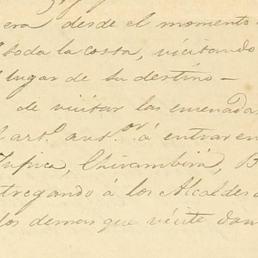 era desde el momento
toda la costa, visitando
lugar de su destino—
de visitar las ensenadas
art.º ant.or á entrar en
Tupica, Chirambirá, B
tregando á los Alcaldes
los demas que visite dan